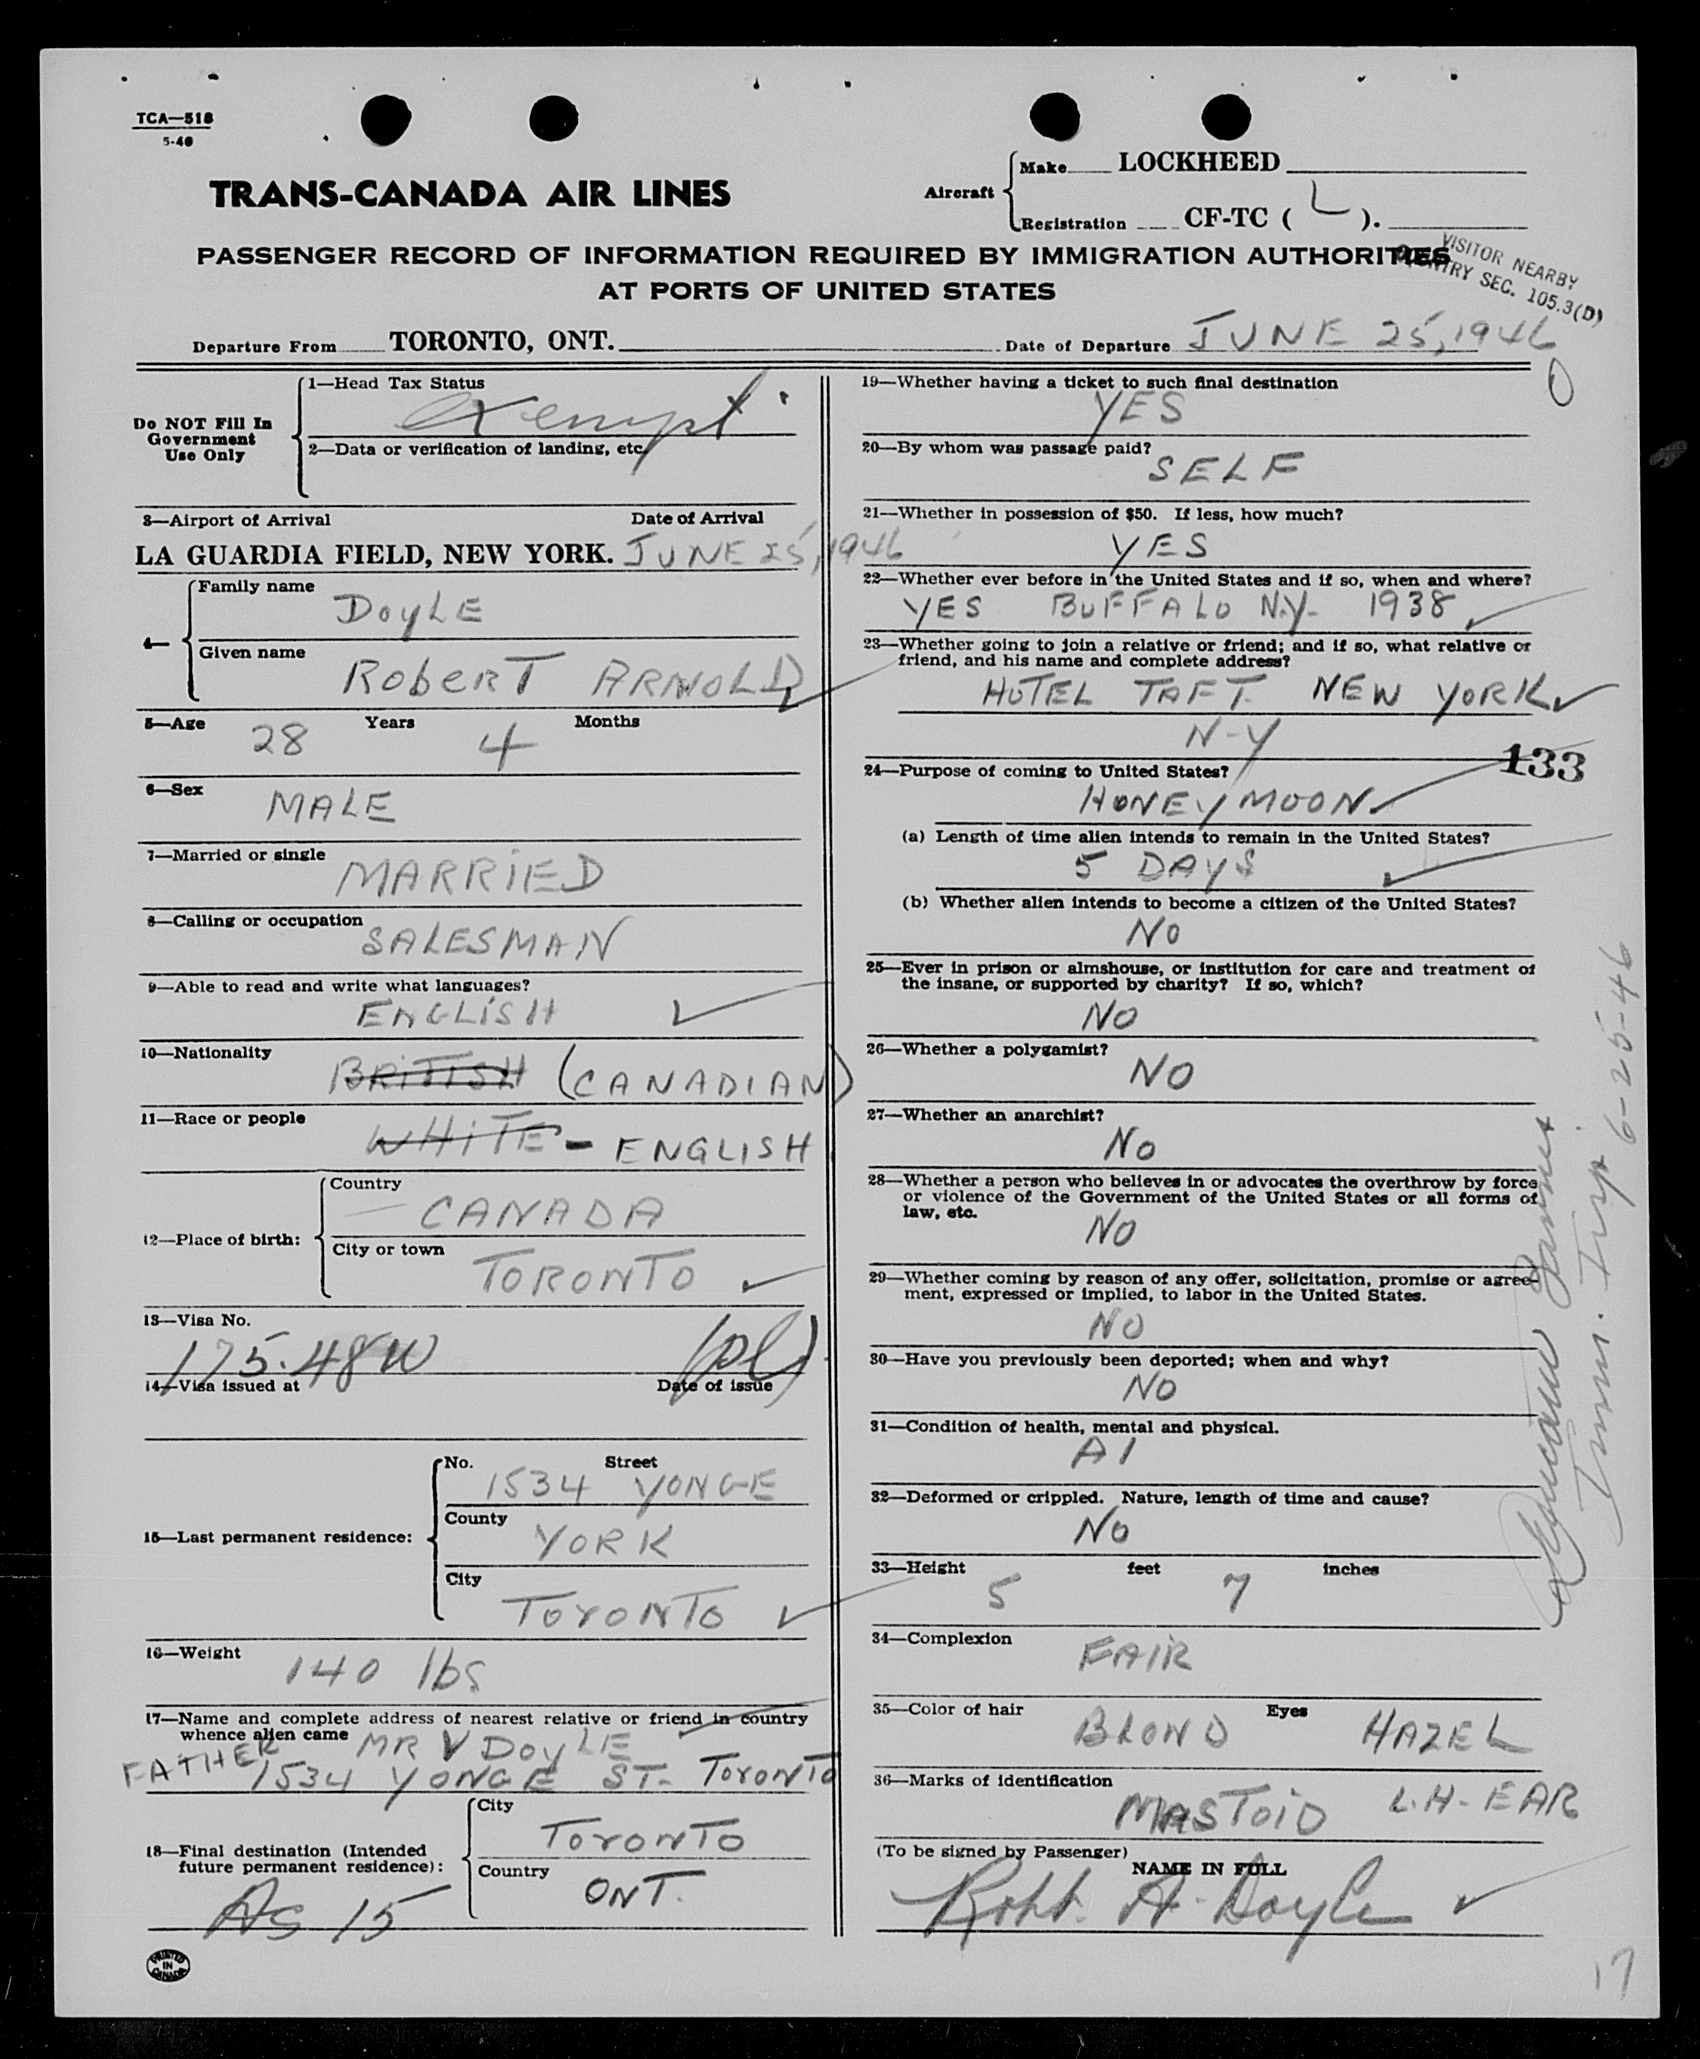 TCA—518
5-46
TRANS-CANADA AIR LINES
Aircraft
Make LOCKHEED
Registration CF-TC ( L ).
PASSENGER RECORD OF INFORMATION REQUIRED BY IMMIGRATION AUTHORITIES
AT PORTS OF UNITED STATES
VISITOR NEARBY
COUNTRY SEC. 105.3(D)
Departure From TORONTO, ONT.
Date of Departure JUNE 25, 1946
0
Do NOT Fill In
Government
Use Only
1—Head Tax Status
exempt
2—Data or verification of landing, etc.
3—Airport of Arrival Date of Arrival
LA GUARDIA FIELD, NEW YORK. JUNE 25, 1946
4—
Family name
DOYLE
Given name
ROBERT ARNOLD
5—Age 28 Years 4 Months
6—Sex
MALE
7—Married or single
MARRIED
8—Calling or occupation
SALESMAN
9—Able to read and write what languages?
ENGLISH
10—Nationality
BRITISH (CANADIAN)
11—Race or people
WHITE - ENGLISH
12—Place of birth:
Country
CANADA
City or town
TORONTO
13—Visa No.
175.48W
14—Visa issued at Date of issue
15—Last permanent residence:
No. Street
1534 YONGE
County
YORK
City
TORONTO
16—Weight
140 lbs
17—Name and complete address of nearest relative or friend in country
whence alien came MR V DOYLE
FATHER 1534 YONGE ST. TORONTO
18—Final destination (Intended
future permanent residence):
City
TORONTO
Country
ONT.
As 15
PRINTED
IN
CANADA
19—Whether having a ticket to such final destination
YES
20—By whom was passage paid?
SELF
21—Whether in possession of $50. If less, how much?
YES
22—Whether ever before in the United States and if so, when and where?
YES BUFFALO N.Y. 1938
23—Whether going to join a relative or friend; and if so, what relative or
friend, and his name and complete address?
HOTEL TAFT. NEW YORK
N-Y
133
24—Purpose of coming to United States?
HONEYMOON
(a) Length of time alien intends to remain in the United States?
5 DAYS
(b) Whether alien intends to become a citizen of the United States?
NO
25—Ever in prison or almshouse, or institution for care and treatment of
the insane, or supported by charity? If so, which?
NO
26—Whether a polygamist?
NO
27—Whether an anarchist?
NO
28—Whether a person who believes in or advocates the overthrow by force
or violence of the Government of the United States or all forms of
law, etc.
NO
29—Whether coming by reason of any offer, solicitation, promise or agree-
ment, expressed or implied, to labor in the United States.
NO
30—Have you previously been deported; when and why?
NO
31—Condition of health, mental and physical.
A1
32—Deformed or crippled. Nature, length of time and cause?
NO
33—Height 5 feet 7 inches
34—Complexion
FAIR
35—Color of hair BLOND Eyes HAZEL
36—Marks of identification
MASTOID L.H. EAR
(To be signed by Passenger)
NAME IN FULL
Robt. A. Doyle
Imm. Insp 6-25-46
17